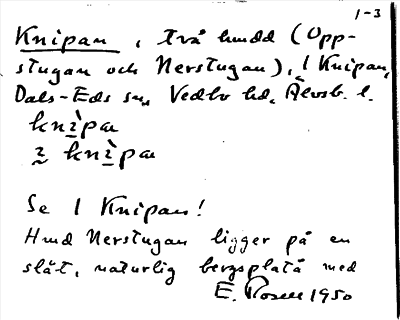 1-3
Knipan, två hmdd (Opp-
stugan och Nerstugan), 1 Knipan,
Dals-Eds sn, Vedbo hd, Älvsb. l.
knìpan
2 knìpan
Se 1 Knipan!
Hmd Nerstugan ligger på en
slät, naturlig bergsplatå med
E. Rosell 1950